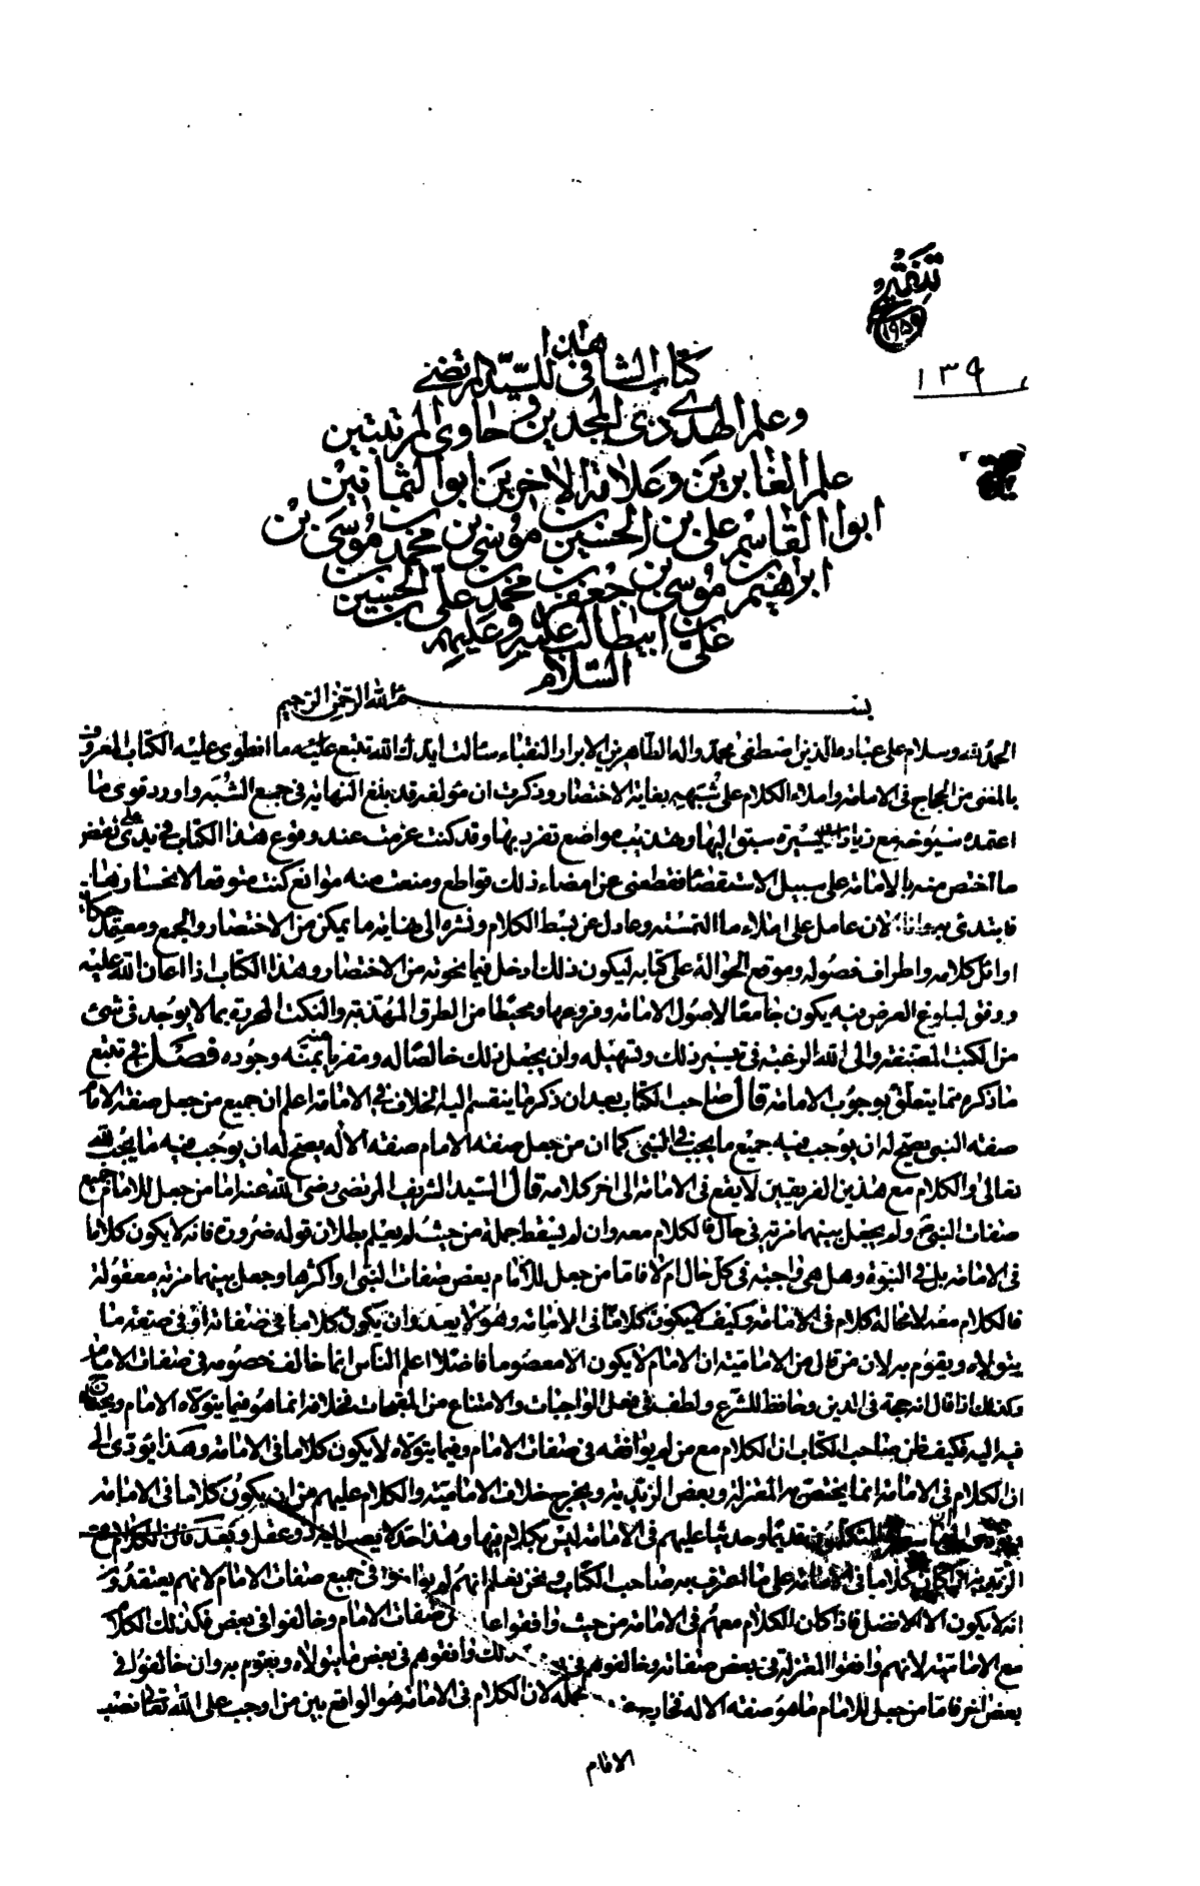 ١٩٥٠
١٣٩
هذا
كتاب الشافي للسيد المرتضى
وعلم الهدى ذي المجدين وحاوي المرتبتين
علم الغابرين وعلامة الاخرين ابو الثمانين
ابوا القاسم على بن الحسين بن موسى بن محمد بن موسى بن
ابراهيم بن موسى بن جعفر بن محمد بن على بن الحسين
بن على بن ابيطالب عليه وعليهم
السلام
بسم الله الرحمن الرحيم
الحمد لله وسلام على عباده الذين اصطفى محمد واله الطاهرين الابرار النقباء سئالت ايدك الله تتبع ما انطوى عليه الكتاب المعروف
بالمغنى من الحجاج في الامامة واملاء الكلام على شبهه بغاية الاختصار وذكرت ان مؤلفه قد بلغ النهاية في جميع الشبه واورد قوى ما
اعتمده شيوخه مع زيادات يسيرة سبق اليها وهذب مواضع تفرد بها وقد كنت عزمت عند وقوع هذا الكتاب في يدى على نقض
ما اختص منه بالامامة على سبيل الاستقصاء فقطعنى عن امضاء ذلك قواطع ومنعت منه موانع كنت متوقعا لانحسارها
فابتدئ به وانا الان عامل على املاء ما التمسته وعادل عن بسط الكلام ونشره الى نهاية ما يمكن من الاختصار والجمع ومعتمد حكاية
اوائل كلامه واطراف فصوله وموقع الحوالة على كتابه ليكون ذلك ادخل فيما نحوته من الاختصار وهذا الكتاب اذا اعان الله عليه
ووفق لبلوغ الغرض فيه يكون جامعا لاصول الامامة وفروعها ومحيطا من الطرق المهذبة والنكت المحررة بما لا يوجد في شئ
من الكتب المصنفة والى الله الرغبة في تيسير ذلك وتسهيله وان يجعل ذلك خالصا له ومقربا منه بمنه وجوده فصل في تتبع
ما ذكره مما يتعلق بوجوب الامامة قال صاحب الكتاب بعد ان ذكر ما ينقسم اليه الخلاف في الامامة اعلم ان جميع من جعل صفة الامام
صفة النبى يصح له ان يوجب فيه جميع ما يجب في النبى كما ان من جعل صفة الامام صفة الاله يصح له ان يوجب فيه ما يجب لله
تعالى والكلام مع هذين الفريقين لا يقع في الامامة الى اخر كلامه قال السيد الشريف المرتضى رضى الله عنه اما من جعل للامام جميع
صفات النبى ولم يجعل بينهما مزية في حال فالكلام معه وان لم يسقط جملة من حيث لم يعلم بطلان قوله ضرورة فانه لا يكون كلاما
في الامامة بل في النبوة وهل هى واجبة في كل حال ام لا فاما من جعل للامام بعض صفات النبى او اكثرها وجعل بينهما مزية معقولة
فالكلام معه لا محالة كلام في الامامة وكيف لا يكون كلاما في الامامة وهو لا يعدو ان يكون كلاما في صفاته او في صفة ما
يتولاه ويقوم به لان من قال من الامامية ان الامام لا يكون الا معصوما فاضلا اعلم الناس انما خالف خصومه في صفات الامام
وكذلك اذا قال انه حجة في الدين وحافظ للشرع ولطف في فعل الواجبات والامتناع من المقبحات فخلافه انما هو فيما يتولاه الامام ويحتاج
فيه اليه فكيف ظن صاحب الكتاب ان الكلام مع من لم يوافقه في صفات الامام وفيما يتولاه لا يكون كلاما في الامامة وهذا يؤدى الى
ان الكلام في الامامة انما يختص به المعتزلة وبعض الزيدية ويخرج خلاف الامامية والكلام عليهم من ان يكون كلاما في الامامة
المتكلمون قديما وحديثا عليهم في الامامة ليس بكلام فيها وهذا حد لا يصير اليه ذو عقل وبعد فان الكلام مع
الزيدية كلاما في الامامة على ما اعترف به صاحب الكتاب ونحن نعلم انهم لم يوافقوا في جميع صفات الامام لانهم يعتقدون
انه لا يكون الا الافضل فاذا كان الكلام معهم في الامامة من حيث وافقوا صفات الامام وخالفوا في بعض فكذلك الكلام
مع الامامية لانهم وافقوا المعتزلة في بعض صفاته وخالفوهم في وافقوهم في بعض ما يتولاه ويقوم به وان خالفوا في
بعض اخر فاما من جعل للامام ما هو صفة الاله فخارج جملة لان الكلام في الامامة هو الواقع بين من اوجب على الله تعالى نصب
الامام